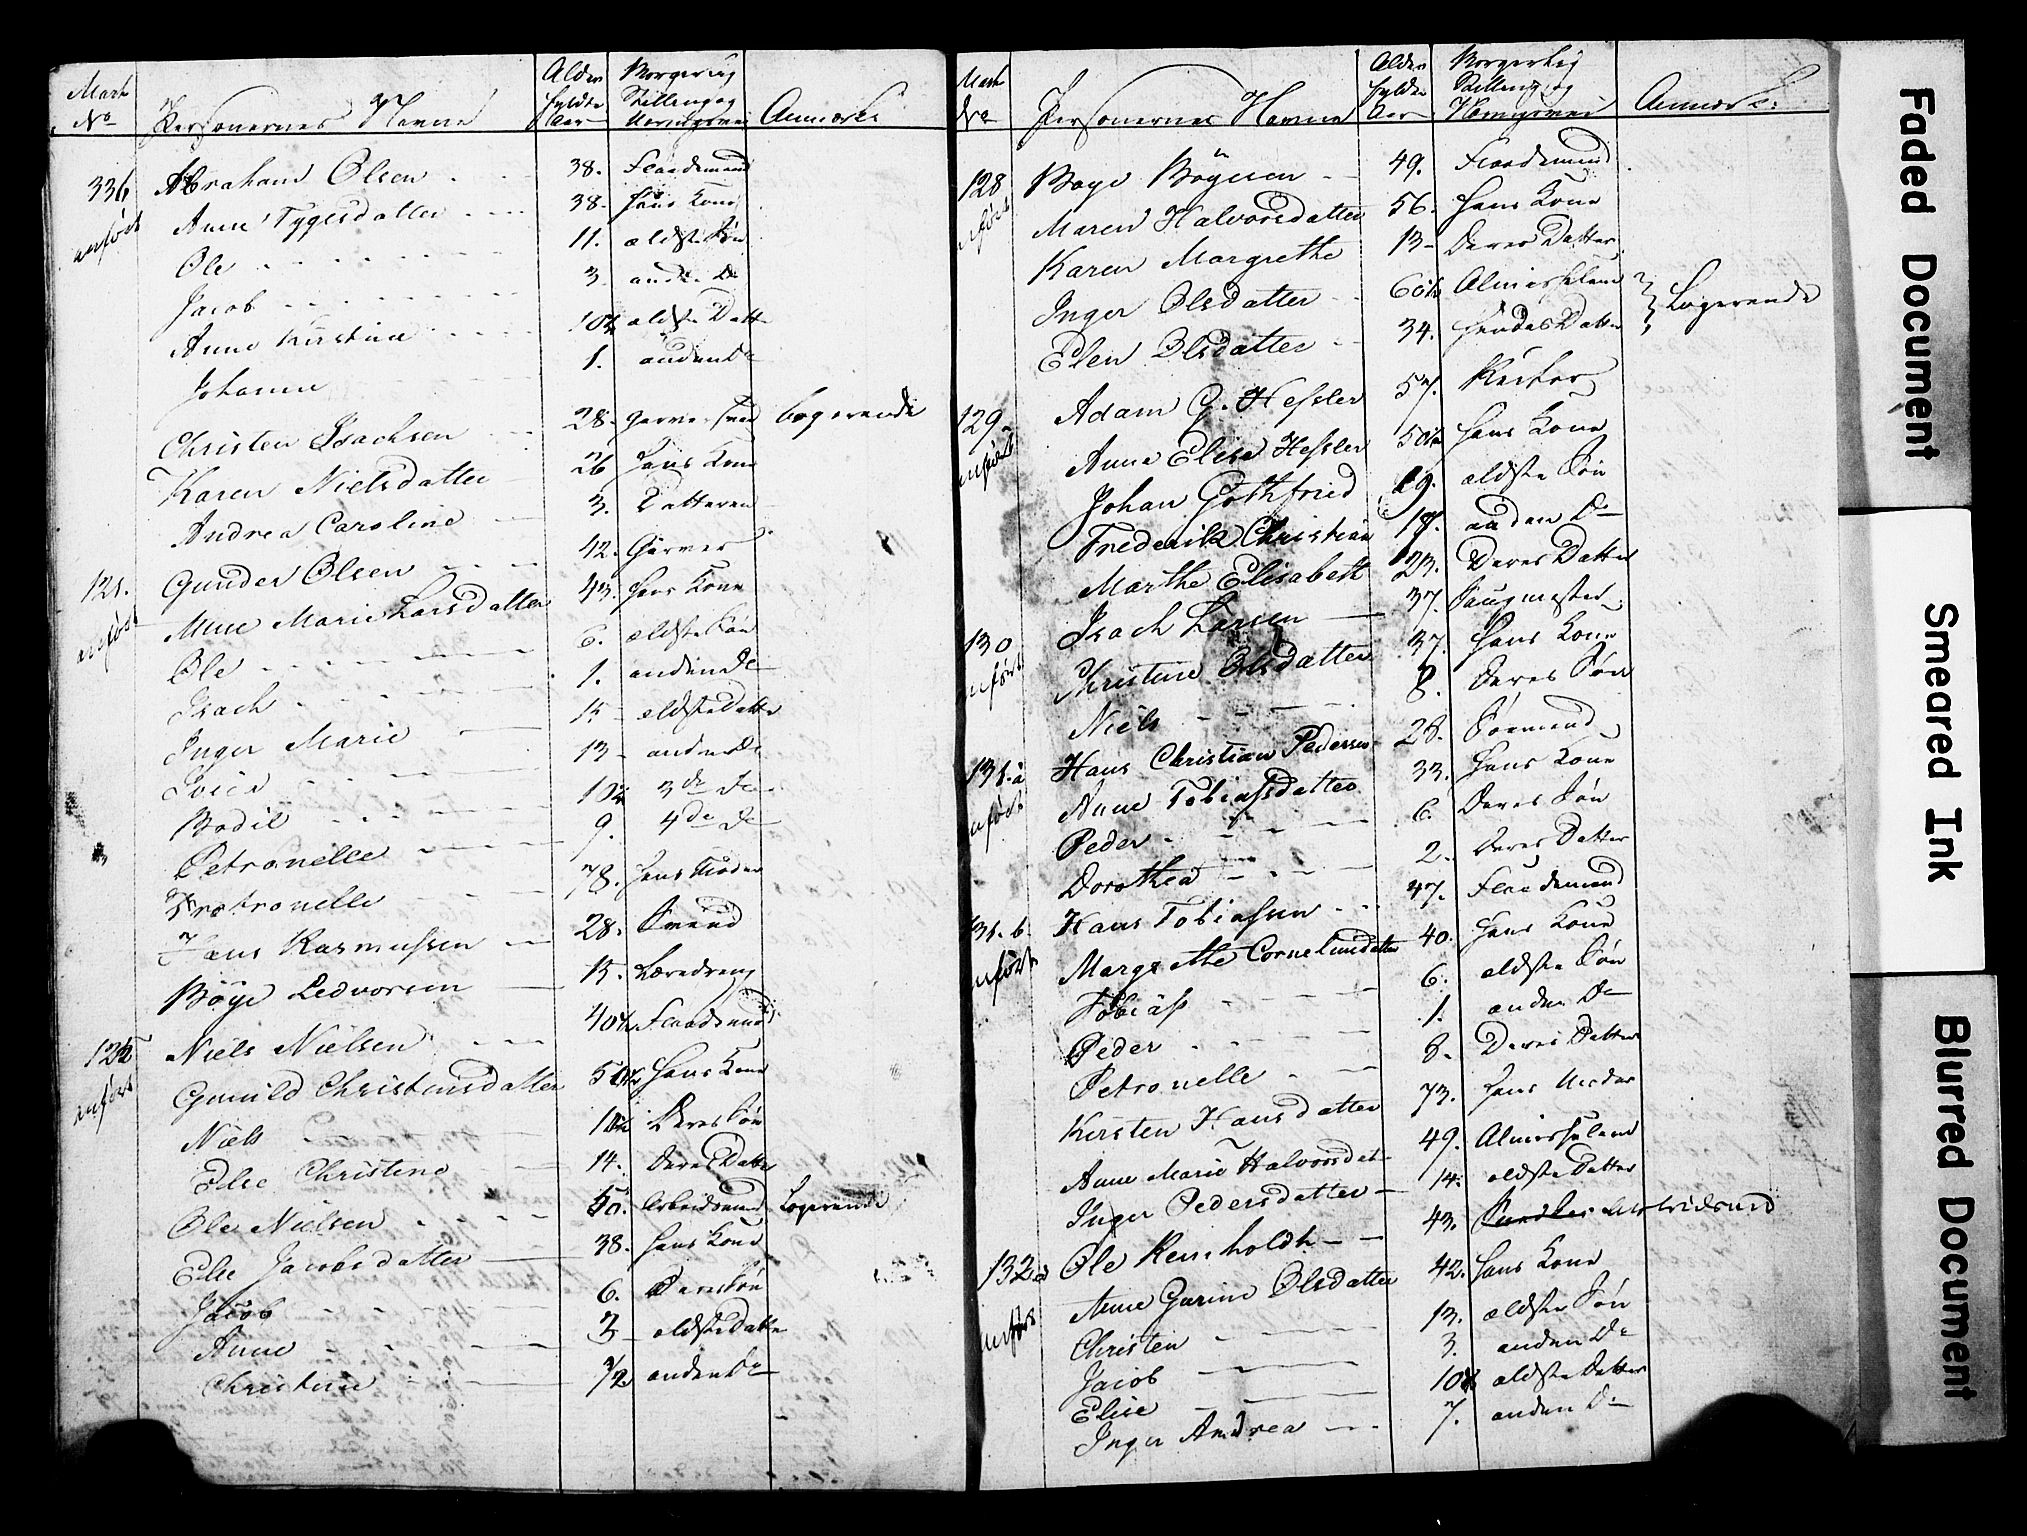 Mart No Personernes Navne Alder fyldte Aar Borgerlig Stilling og Næringsvei Anmærk
336 Abraham Olsen 38. Flaademand
anført Anne Tygesdatter 38. hans Kone
Ole 11. ældste Søn
Jacob 3 anden Do
Anne Kirstine 10 ældste Datter
Johanne 1. anden Do
Christen Isachsen 28. garver Logerende
Karen Nielsdatter 26 hans Kone
Andrea Caroline 3. Datteren
121. Gunder Olsen 42. Garver
anført Anne Marie Larsdatter 43. hans Kone
Ole 6. ældste Søn
Isach 1. anden Do
Inger Marie 15 ældste Datter
13 anden Do
Bodil 10 3de Do
Petronelle 9. 4de Do
Petronelle 78. hans Moder
Hans Rasmussen 28. Svend
Böye Pedversen 15. Læredreng
Niels Nielsen 40 Flaademand
anført Gunild Christensdatter hans Kone
Niels 10 Deres Søn
Else Christine 14. Deres Datter
Ole Nielsen 50. Arbeidsmand Logerende
Else Jacobsdatter 38. hans Kone
Jacob 6. Deres Søn
Anne ældste Datter
Christine 1/2 anden Do
Mart No Personernes Navne Alder fyldte Aar Borgerlig Stilling og Næringsvei Anmærk:
128 Boye Bögesen 49. Flaademand
anført Maren Halvorsdatter 56. hans Kone
Karen Margrethe 13 Deres Datter
Inger Olsdatter 60 Almisselem Logerende
Elen Olsdatter 34. hendes Datter
129 Adam G. Hessler 57.
anført Anne Elise Hessler 50 hans Kone
Johan Gothfried 19. ældste Søn
Frederik Christian 17. anden Do
Marthe Elisabeth 23. Deres Datter
130 Isach Larsen 37.
anført Kristine Olsdatter 37. hans Kone
Niels 8. Deres Søn
131.a Hans Christian Pedersen 28. Sømand
anført Anne Tobiasdatter 33. hans Kone
Peder 6. Deres Søn
Dorothea 2. Deres Datter
131.b. Hans Tobiasen 47. Flaademand
anført Margrethe Corneliusdatter 40. hans Kone
Tobias 6. ældste Søn
Peder 1. anden Do
Petronelle 8. Deres Datter
Kirsten Hansdatter 73. hans Moder
Anne Marie Halvorsdat 49. Almisselem
Inger Pedersdatter 14. ældste Datter
132a Ole Reinholdt 43. Snedker Arbeidsmd
anført Anne Gurine Olsdatter 42. hans Kone
Christen 13. ældste Søn
Jacob 3. anden Do
Elise 10 ældste Datter
Inger Andrea 7. anden Do
Faded Document
Smeared Ink
Blurred Document